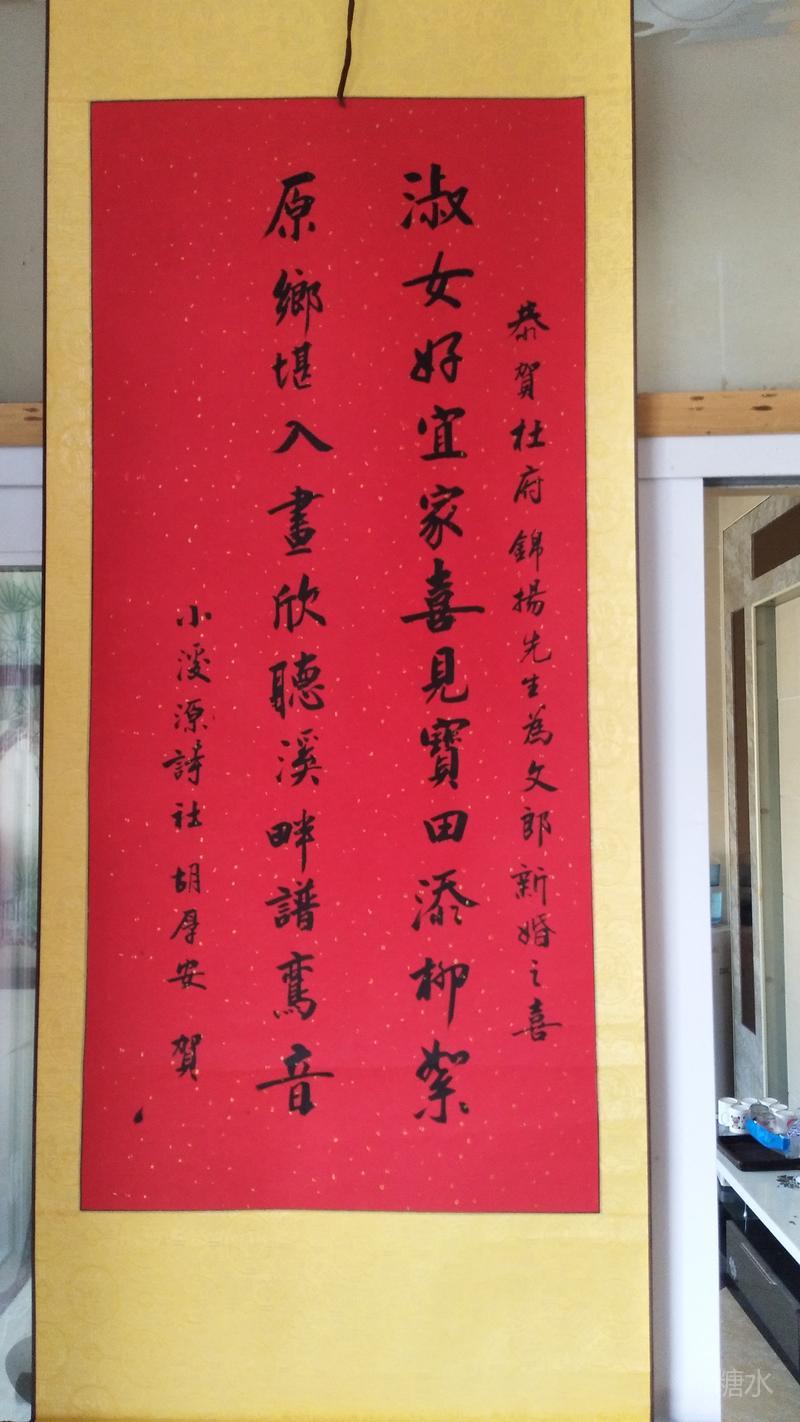 恭賀杜府錦揚先生為文郎新婚之喜
淑女好宜家喜見寶田添柳絮
原鄉堪入畫欣聽溪畔譜鸞音
小溪源詩社胡厚安賀
糖水